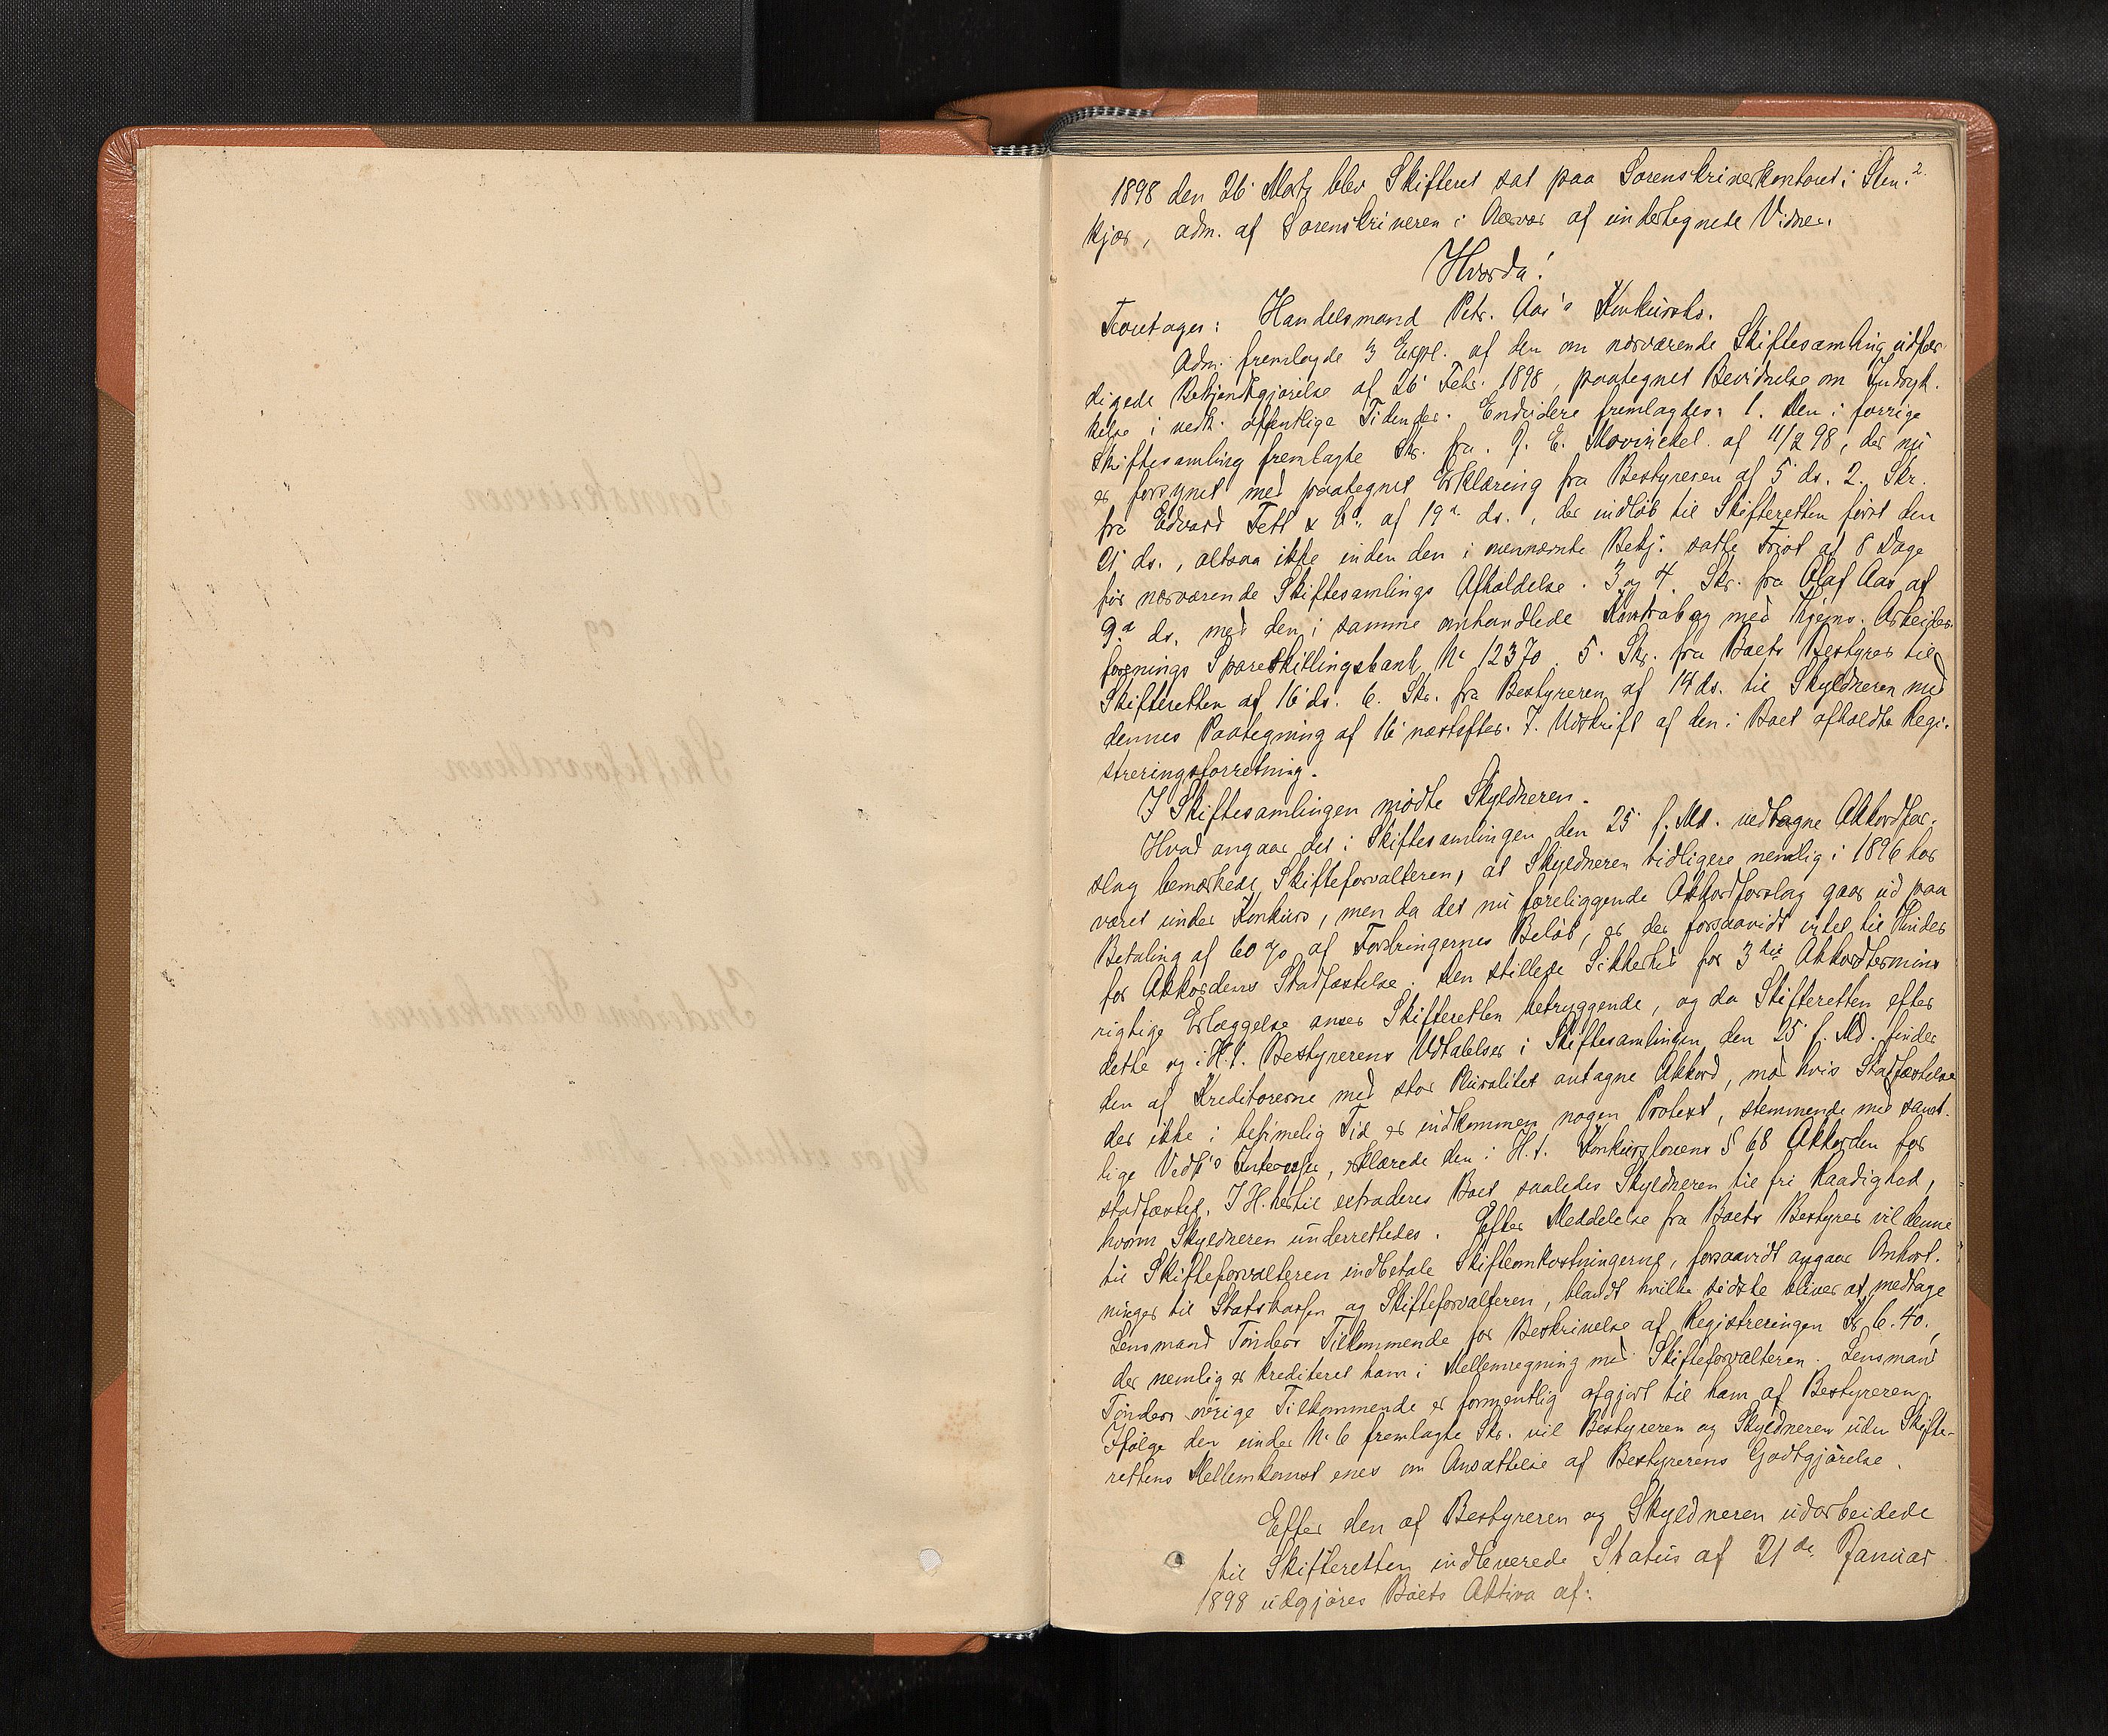 2.
1898 den 26' Marts blev Skifteret sat paa Sorenskriverkontoret i Sten-
kjær, adm. af Sorenskriveren i Nærvær af undertegnede Vidner.
Hvorda!
Foretages: Handelsmand Petr. Aas's Konkursbo.
Adm. fremlagde 3 Expl. af den om nærværende Skiftesamling udfær-
digede Bekjendtgjørelse af 26' Febr. 1898, paategnet Bevidnelse om Indryk-
kelse i vedk. offentlige Tidender. Endvidere fremlagdes: 1. Den i forrige
Skiftesamling fremlagte Skr. fra J. E. Mowinckel af 11/2 98, der nu
er forsynet med paategnet Erklæring fra Bestyreren af 5' ds. 2. Skr.
fra Edvard Fett & Co. af 19de ds., der indløb til Skifteretten først den
21' ds., altsaa ikke inden den i nævnte Bekj. satte Frist af 8 Dage
før nærværende Skiftesamlings Afholdelse. 3 og 4. Skr. fra Olaf Aas af
9de ds. med den i samme omhandlede Kontrabog med Thjems. Arbeider-
forenings Spareskillingsbank No 12370. 5. Skr. fra Boets Bestyrer til
Skifteretten af 16' ds. 6. Skr. fra Bestyreren af 14 ds. til Skyldneren med
dennes Paategning af 16' næstefter. 7. Udskrift af den i Boet afholdte Regi-
streringsforretning.
I Skiftesamlingen mødte Skyldneren.
Hvad angaar det i Skiftesamlingen den 25' f. Md. vedtagne Akkordfor-
slag bemærkede Skifteforvalteren, at Skyldneren tidligere nemlig i 1896 har
været under Konkurs, men da det nu foreliggende Akkordforslag gaar ud paa
Betaling af 60 % af Fordringernes Beløb, er der forsaavidt intet til Hinder
for Akkordens Stadfæstelse. Den stillede Sikkerhed for 3die Akkordtermins
rigtige Erlæggelse anser Skifteretten betryggende, og da Skifteretten efter
dette og i H.t. Bestyrerens Udtalelser i Skiftesamlingen den 25' f. Md. finder
den af Kreditorerne med stor Pluralitet antagne Akkord, mod hvis Stadfæstelse
der ikke i betimelig Tid er indkommen nogen Protest, stemmende med samt-
lige Vedk's Interesse, erklærede den i H.t. Konkurslovens § 68 Akkorden for
stadfæstet. I H. hertil extraderes Boet saaledes Skyldneren til fri Raadighed,
hvorom Skyldneren underrettedes. Efter Meddelelse fra Boets Bestyrer vil denne
til Skifteforvalteren indbetale Skifteomkostningerne, forsaavidt angaar Omkost-
ninger til Statskassen og Skifteforvalteren, blandt hvilke sidste bliver at medtage
Lensmand Tønders Tilkommende for Beskrivelse af Registreringen Kr. 6.40,
der nemlig er krediteret ham i Mellemregning med Skifteforvalteren. Lensmand
Tønders øvrige Tilkommende er formentlig afgjort til ham af Bestyreren.
Ifølge den under No 6 fremlagte Skr. vil Bestyreren og Skyldneren uden Skifte-
rettens Mellemkomst enes om Ansættelse af Bestyrerens Godtgjørelse.
Efter den af Bestyreren og Skyldneren udarbeidede
til Skifteretten indleverede Status af 21de Januar
1898 udgjøres Boets Aktiva af: